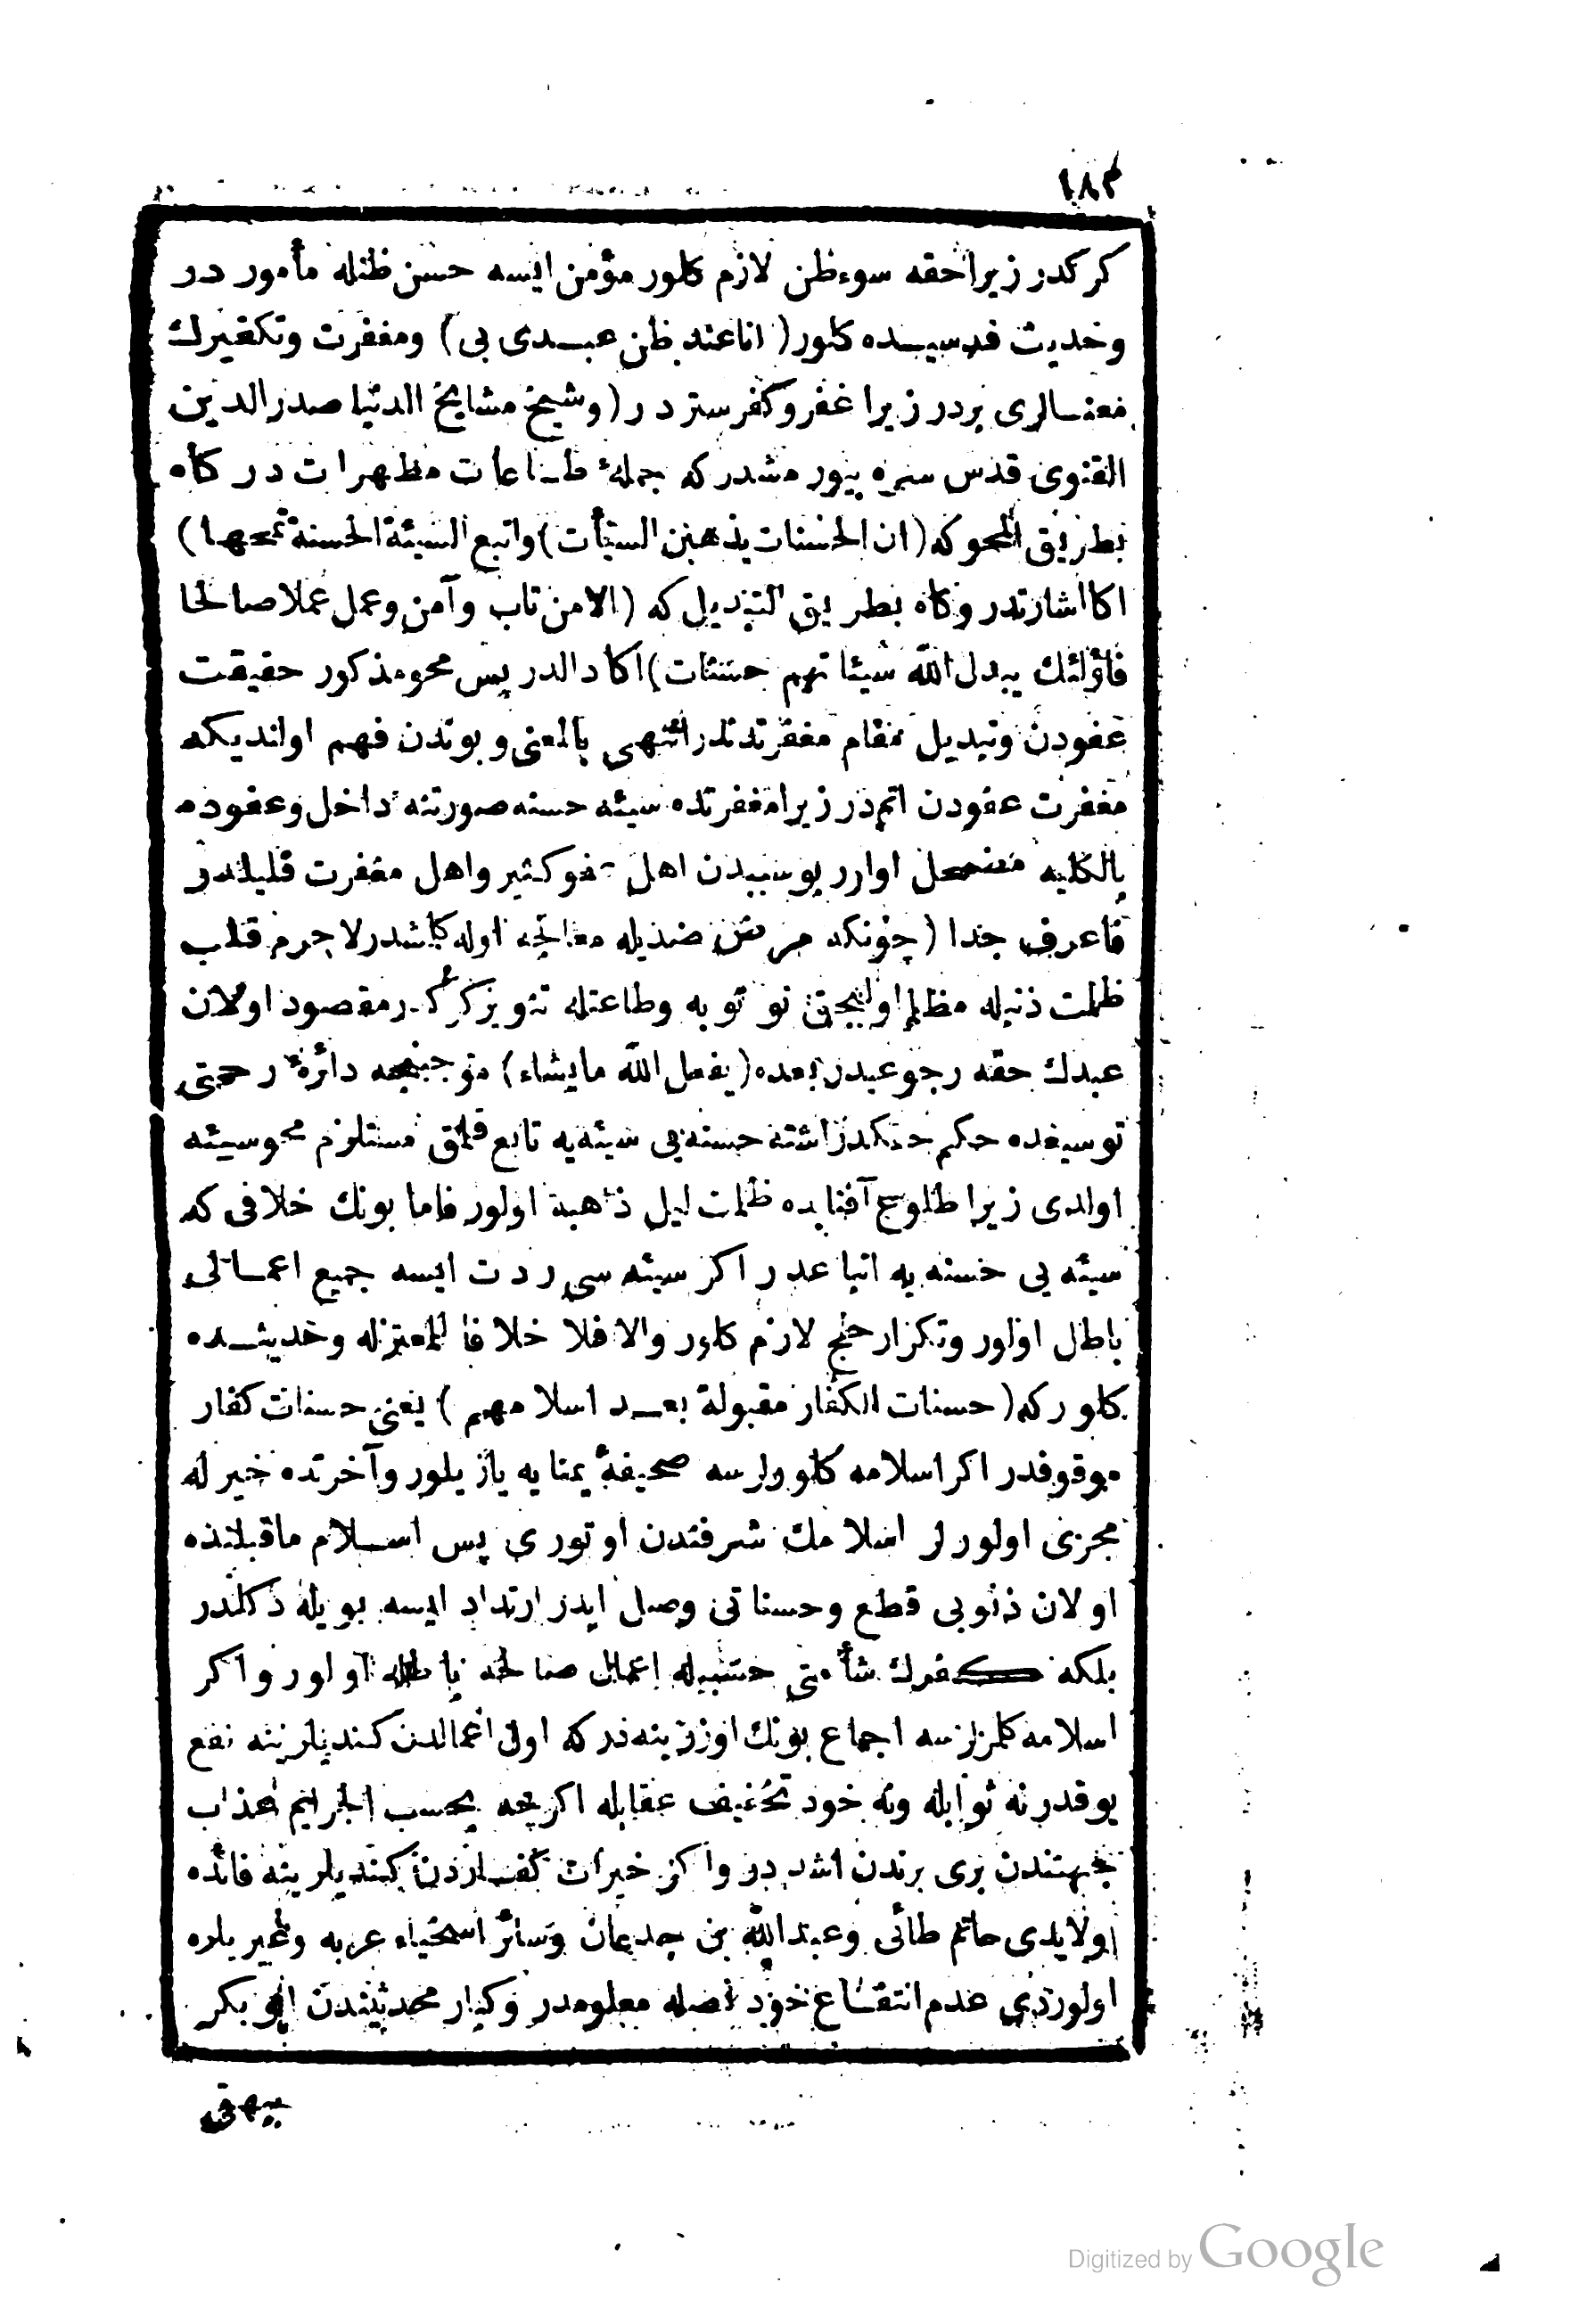 ١٨٣
كركدر زيرا حقه سوءظن لازم كلور مؤمن ايسه حسن ظنله مأمور در
وحديث قدسيده كلور (انا عند ظن عبدى بى) ومغفرت وتكفيرك
معنالرى بردر زيرا غفر وكفر ستر در (وشيخ مشايخ الدنيا صدر الدين
القنوى قدس سره بيورمشدركه جملهٔ طاعات مطهرات در كاه
بطريق المحو كه (ان الحسنات يذهبن السيئات) واتبع السيئة الحسنة تمحها)
اكا اشارتدر وكاه بطريق التبديل كه (الا من تاب وآمن وعمل عملا صالحا
فأولئك يبدل الله سيئاتهم حسنات) اكا دالدر پس محو مذكور حقيقت
عفودن وتبديل مقام مغفرتدندر انتهى بالمعنى وبوندن فهم اولنديكه
مغفرت عفودن اتمدر زيرا مغفرتده سيئه حسنه صورتنه داخل وعفوده
بالكليه مضمحل اولور بو سببدن اهل عفو كثير واهل مغفرت قليلدر
فاعرف جدا (چونكه مرض ضديله معالجه اوله كلشدر لاجرم قلب
ظلمت ذنبله مظلم اوليجق نو توبه وطاعتله تنوير كركدر مقصود اولان
عبدك حقه رجوعيدر بعده (يفعل الله مايشاء) موجبنجه دائرهٔ رحمتى
توسيعده حكم حقكدر اشته حسنه يى سيئه يه تابع قلمق مستلزم محو سيئه
اولدى زيرا طلوع آفتابده ظلمت ليل ذاهبة اولور فاما بونك خلافى كه
سيئه يى حسنه يه اتباعدر اكر سيئه سى ردت ايسه جميع اعمالى
باطل اولور وتكرار حج لازم كلور والا فلا خلافا للمعتزله وحديثده
كلوركه (حسنات الكفار مقبولة بعد اسلامهم) يعنى حسنات كفار
موقوفدر اكر اسلامه كلورلرسه صحيفهٔ يمنايه يازيلور وآخرتده خيرله
مجزى اولورلر اسلامك شرفندن اوتورى پس اسلام ماقبلنده
اولان ذنوبى قطع وحسناتى وصل ايدر ارتداد ايسه بويله دكلدر
بلكه كفرك شأمتى حسبيله اعمال صالحه باطله اولور واكر
اسلامه كلمزلرسه اجماع بونك اوزرينه در كه اول اعمالدن كنديلرينه نفع
يوقدر نه ثوابله ونه خود تخفيف عقابله اكرچه بحسب الجرايم عذاب
جهتندن برى برندن اشددر واكر خيرات كفاردن كنديلرينه فائده
اولايدى حاتم طائى وعبدالله بن جدعان وسائر اسخياء عربه وغيريلره
اولوردى عدم انتفاع خود نصله معلومدر وكبار محدثيندن ابو بكر
بيهقى
Digitized by Google